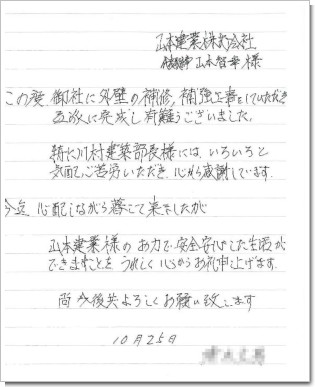 山本建業株式会社
山本智幸様
この度 御社に外壁の補修、補強工事をしていただき
立派に完成し有難うございました。
特に川村建築部長様には、いろいろと
気配りご苦労いただき、心から感謝しています。
心配しながら暮して来ましたが
山本建業様の お力で安全安心した生活が
できますことを うれしく心からお礼申上げます。
尚 今後共よろしくお願い致します
10月25日